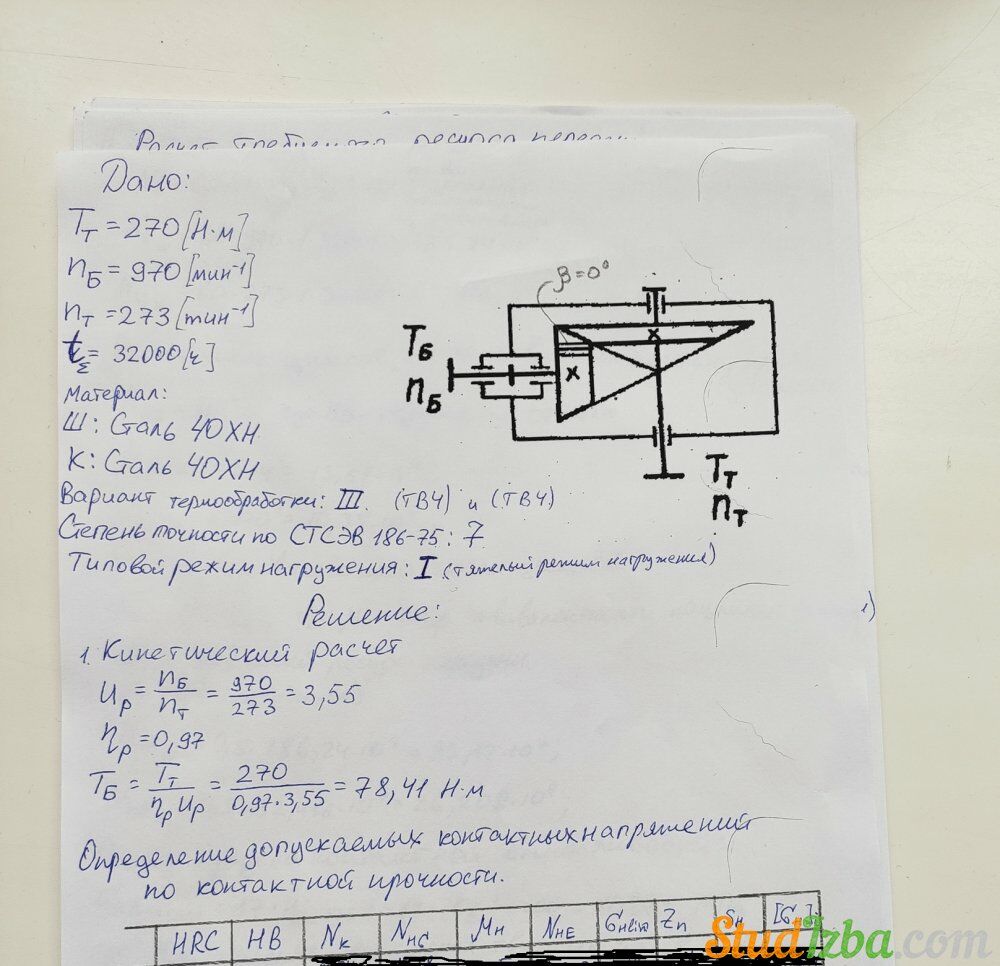 Расчет
Дано:
T_T = 270 [Н·м]
n_Б = 970 [мин⁻¹]
n_T = 273 [мин⁻¹]
t_Σ = 32000 [ч]
материал:
Ш: Сталь 40ХН
К: Сталь 40ХН
Вариант термообработки: III. (ТВЧ) и (ТВЧ)
Степень точности по СТСЭВ 186-75: 7
Типовой режим нагружения: I (тяжелый режим нагружения)
β=0°
T_Б
n_Б
T_T
n_T
Решение:
1)
1. Кинетический расчет
u_p = n_Б/n_T = 970/273 = 3,55
η_p = 0,97
T_Б = T_T/(η_p u_p) = 270/(0,97·3,55) = 78,41 Н·м
Определение допускаемых контактных напряжений
по контактной прочности.
HRC HB N_K N_HG μ_H N_HE σ_Hlim Z_N S_H [σ]
StudIzba.com